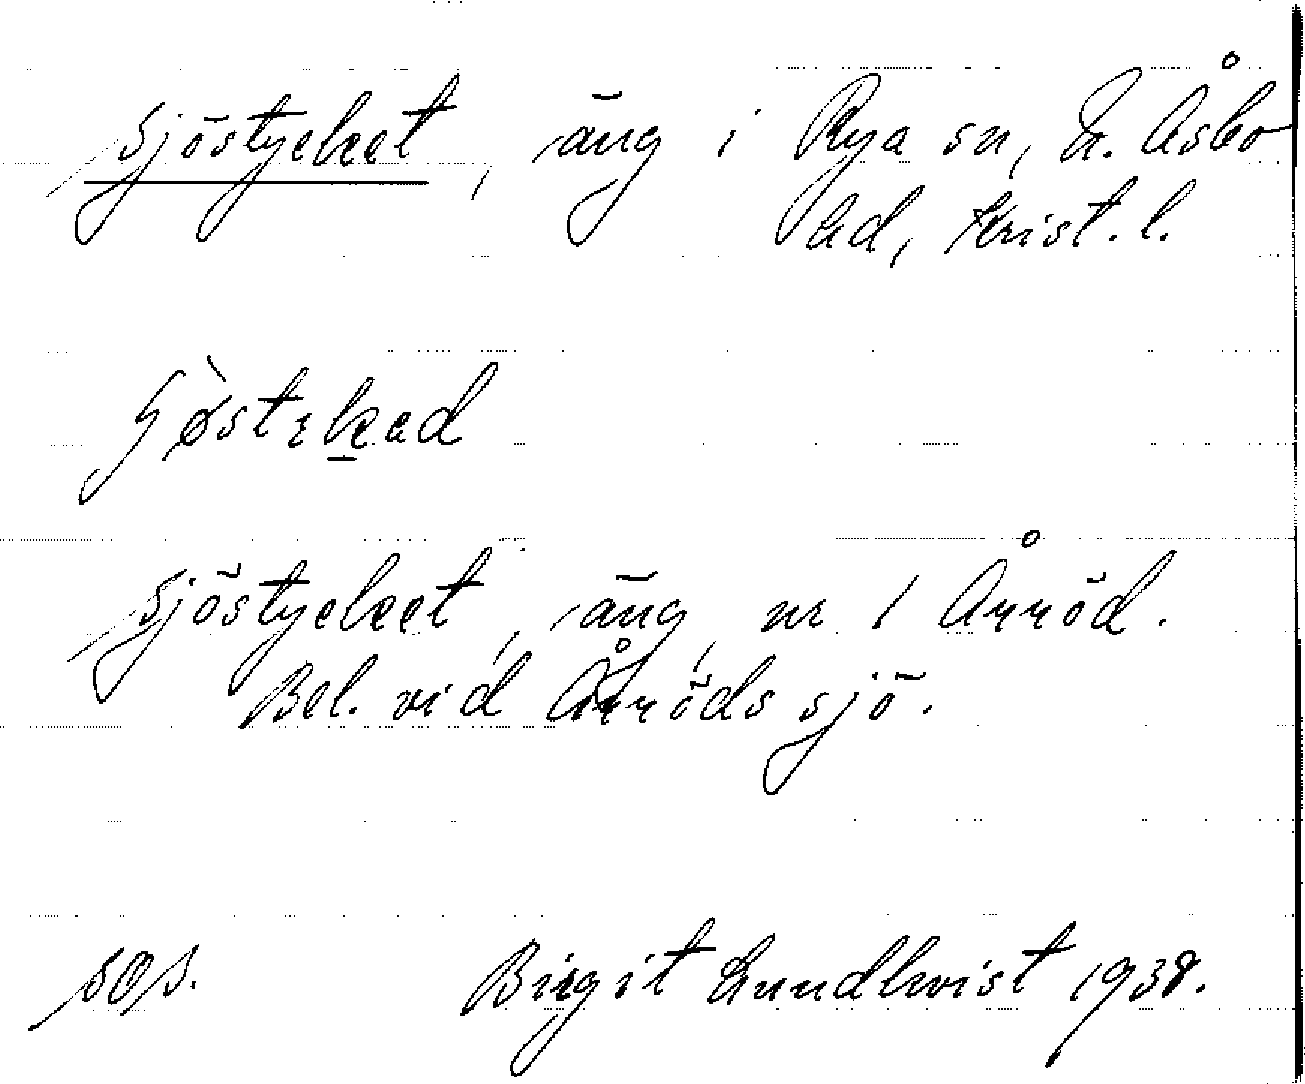 Sjöstycket, äng i Rya sn, N. Åsbo
hd, Krist. l.
Sjöstycket, äng, nr 1 Arröd.
Bel. vid Arröds sjö.
søs.
Birgit Lundkvist 1938.